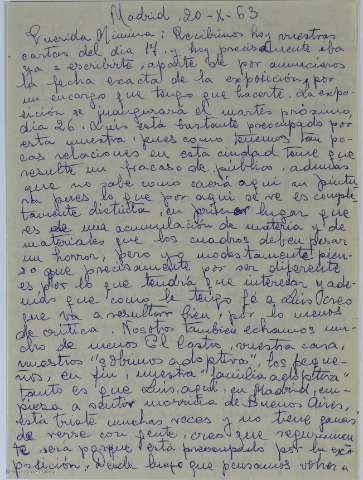 Madrid, 20-X-63
Querida Mimina: Recibimos hoy vuestras
cartas del día 17, y hoy precisamente iba
ya a escribirte, aparte de por anunciaros
la fecha exacta de la exposición, por
un encargo que tengo que hacerte. La expo-
sición se inaugurará el martes próximo,
día 26. Luis está bastante preocupado por
esta muestra pues como tenemos tan po-
cas relaciones en esta ciudad teme que
resulte un fracaso de público, además
que no sabe como caerá aquí su pintu
ra pues lo que por aquí se ve es comple
tamente distinta, en primer lugar que
es de una acumulación de materia y de
materiales que los cuadros deben pesar
un horror, pero yo modestamente pien-
so que precisamente por ser diferente
es por lo que tendrá que interesar y ade-
más que como le tengo fé a Luis creo
que va a resultar bien, por lo menos
de crítica. Nosotros también echamos mu-
cho de menos El Castro, vuestra casa,
nuestros adoptiva", los peque-
ños, en fin, nuestra "familia adoptiva"
tanto es que Luis, aquí, en Madrid, em-
pieza a sentir morriña de Buenos Aires,
está triste muchas veces y no tiene ganas
de verse con gente, creo que seguramen
te será porque está preocupado por la ex
posición. Desde luego que pensamos volver a